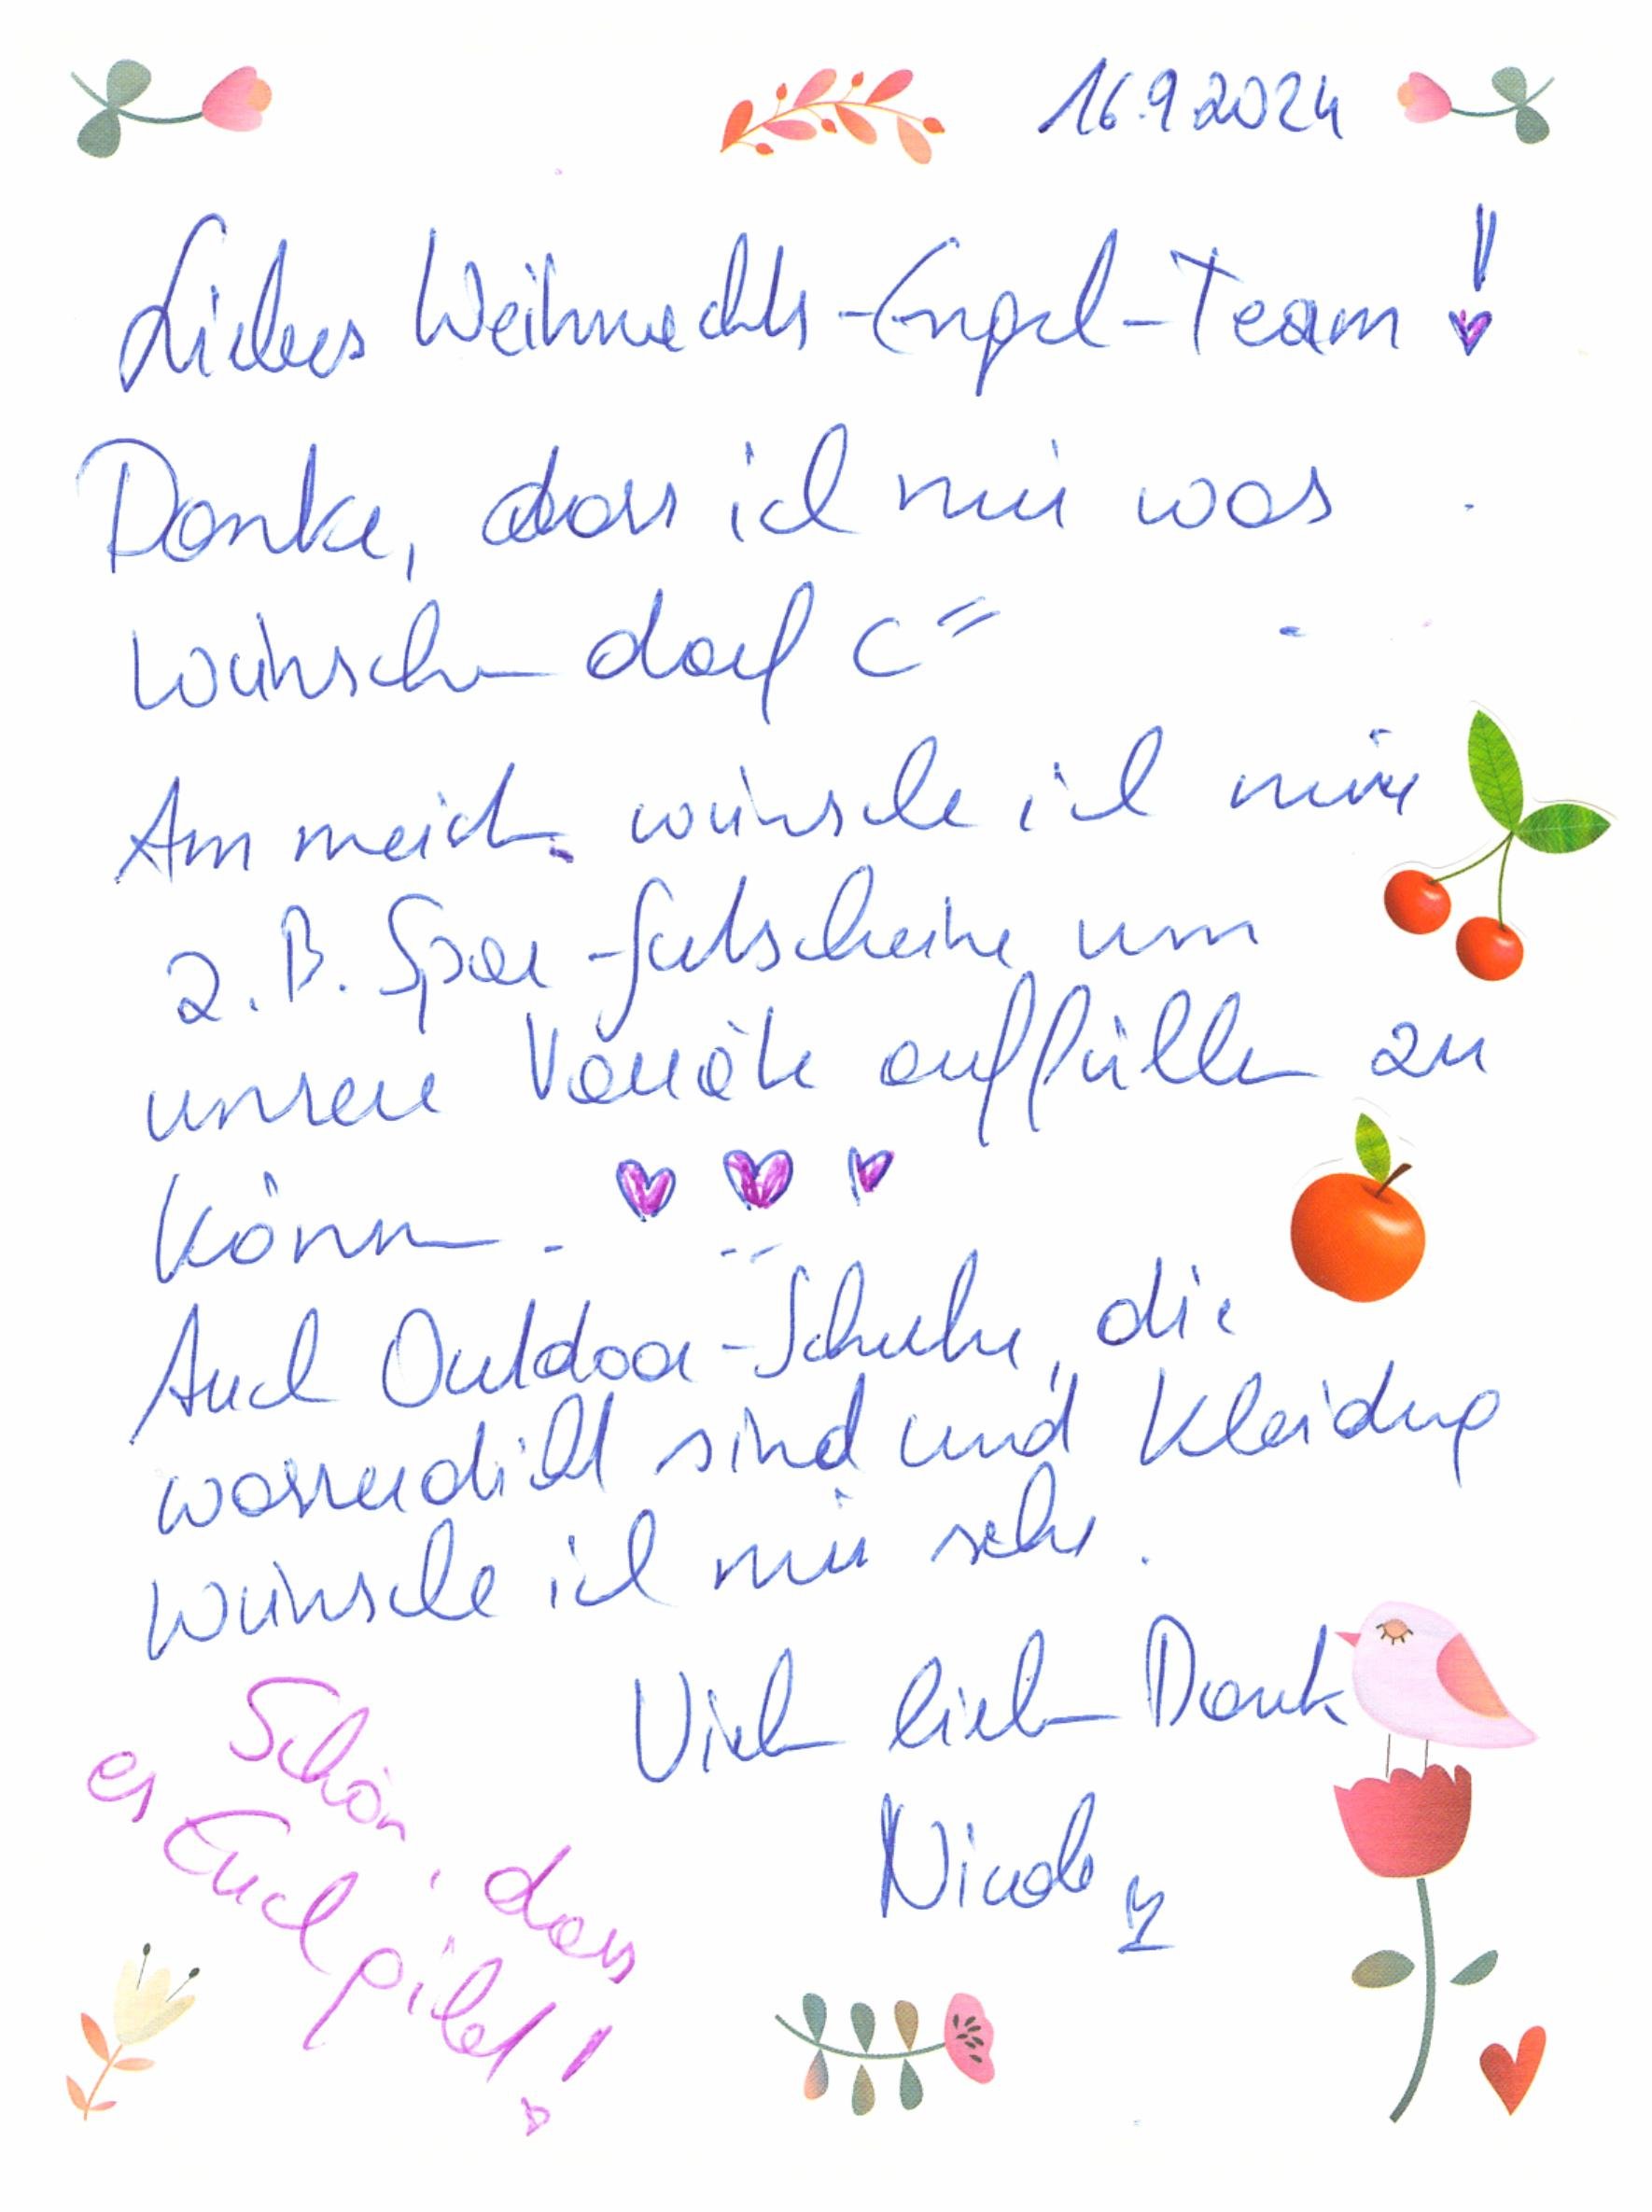 16.9.2024
Liebes Weihnachts-Engel-Team!
Danke, dass ich mir was
wünschen darf C=
Am meisten wünsche ich mir
z.B. Spar-Gutscheine um
unsere Vorräte auffüllen zu
können.
Auch Outdoor-Schuhe, die
wasserdicht sind und Kleidung
wünsche ich mir sehr.
Vielen lieben Dank
Nicole
Schön, dass
es Euch gibt!